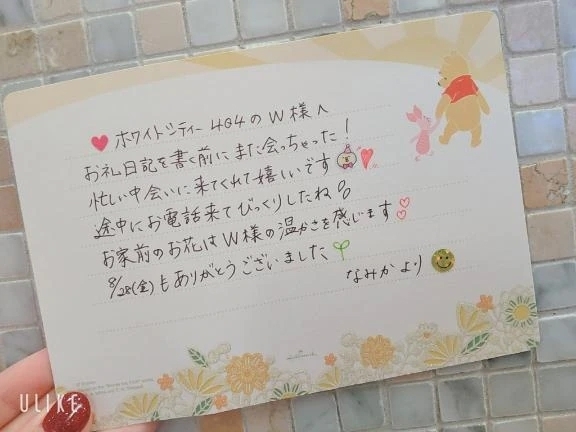 ホワイトシティー404のW様へ
お礼日記を書く前にまた会っちゃった！
忙しい中会いに来てくれて嬉しいです
途中にお電話来てびっくりしたね
お家前のお花はW様の温かさを感じます
8/28(金)もありがとうございました
なみかより
Hallmark
© Disney
ULIKE